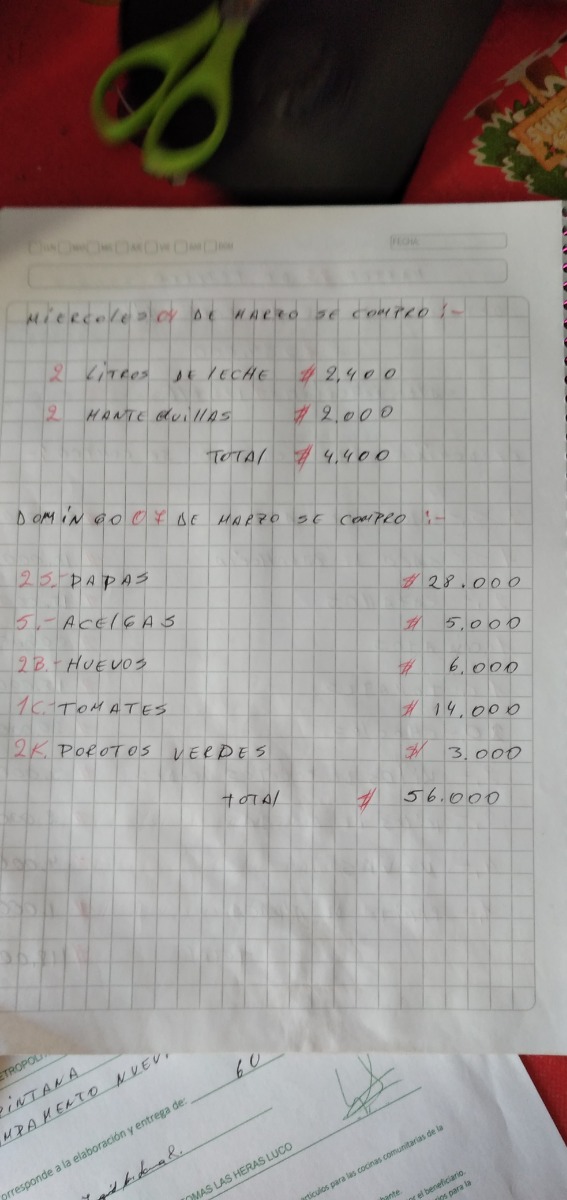 FECHA
MIERCOLES 04 DE MARZO SE COMPRO :-
2 LITROS DE LECHE $ 2,400
2 MANTEQUILLAS $ 2.000
TOTAL $ 4.400
DOMINGO 07 DE MARZO SE COMPRO :-
2S.- PAPAS $ 28.000
5.- ACELGAS $ 5.000
2B.- HUEVOS $ 6.000
1C.- TOMATES $ 14.000
2K. POROTOS VERDES $ 3.000
TOTAL $ 56.000
ETROPOLI
PINTANA
MPAMENTO NUEV
orresponde a la elaboración y entrega de: 60
TOMAS LAS HERAS LUCO
artículos para las cocinas comunitarias de la
por el beneficiario.